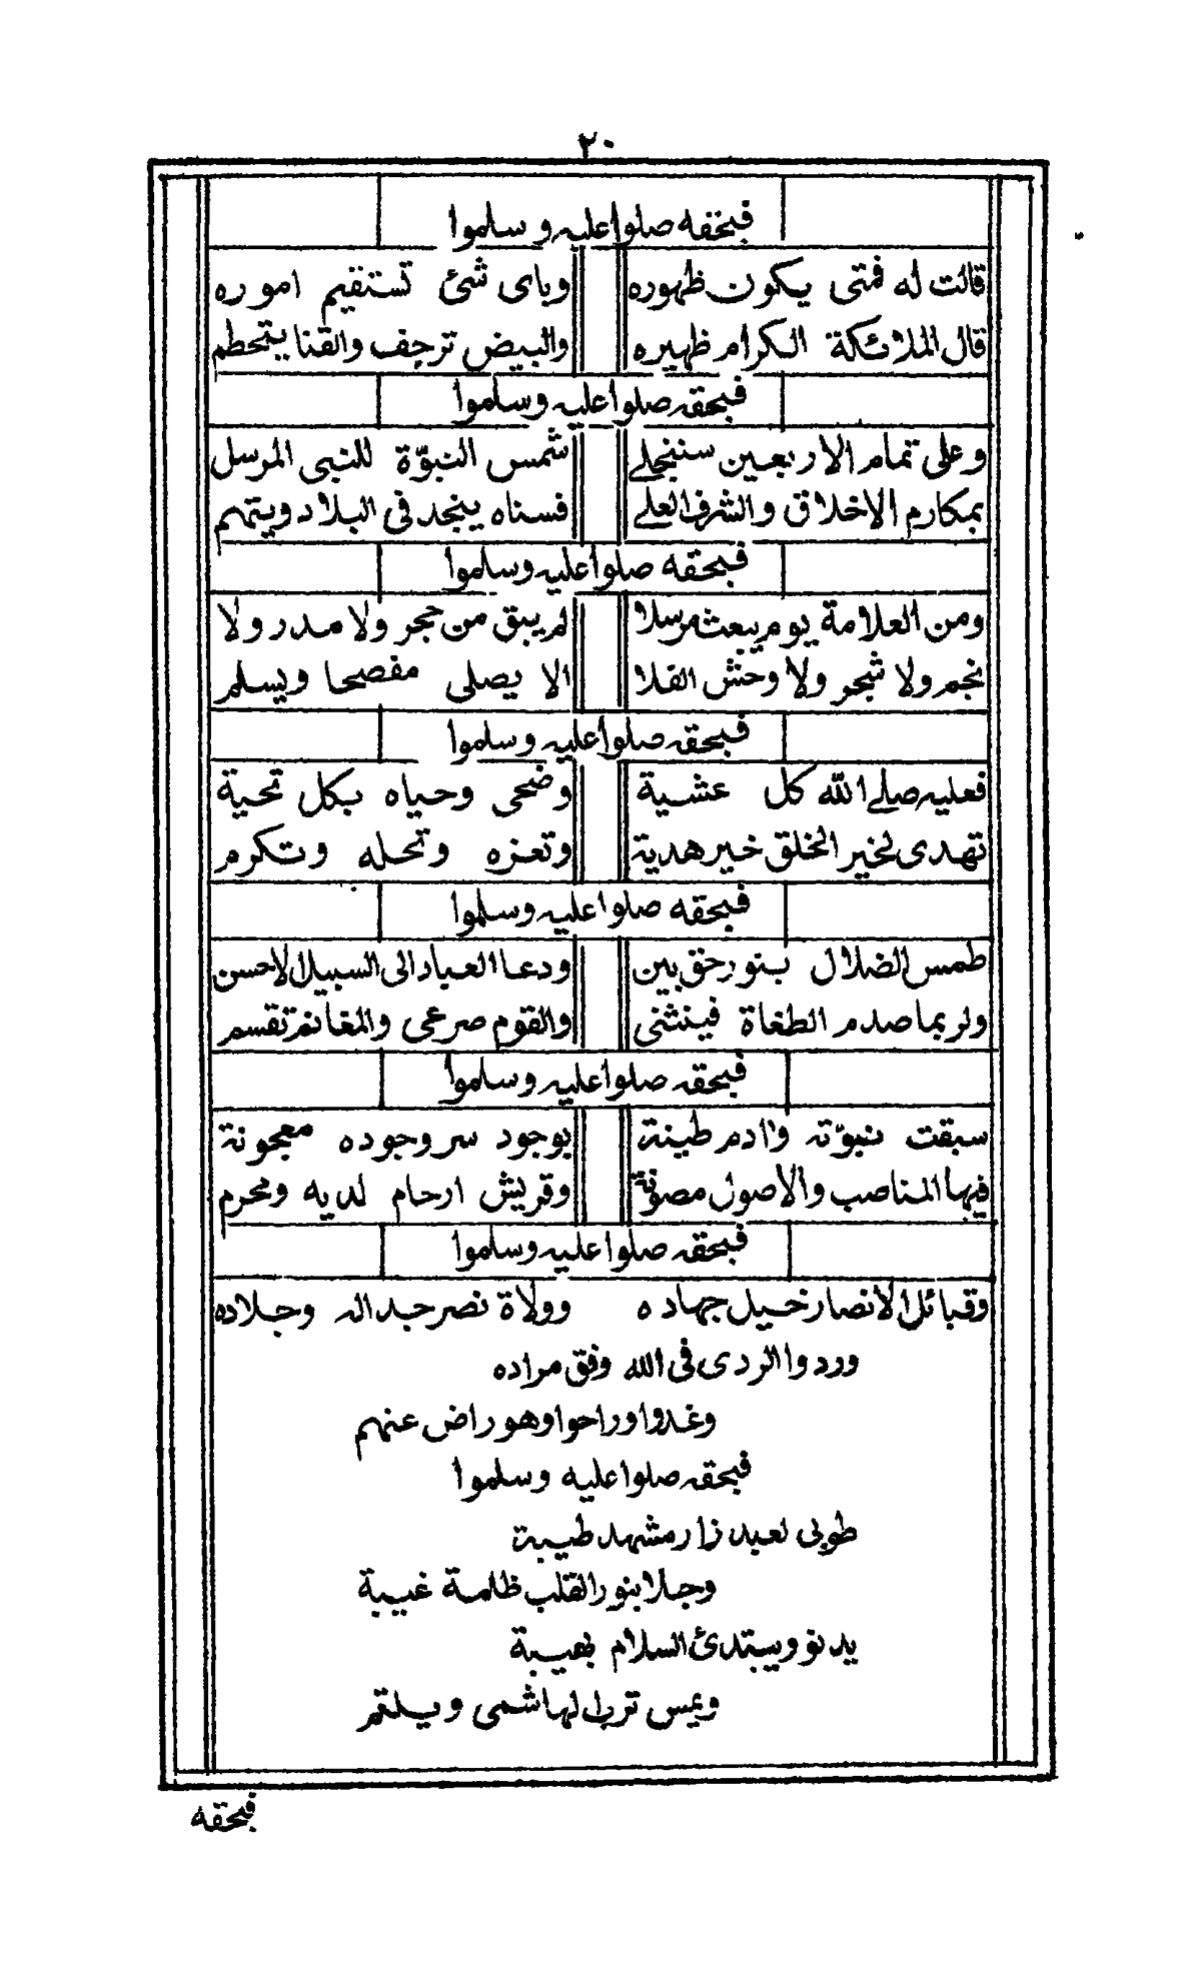 ٢٠
فبحقه صلوا عليه وسلموا
قالت له فمتى يكون ظهوره وباى شئ تستقيم اموره
قال الملائكة الكرام ظهيره والبيض ترجف والقنا يتحطم
فبحقه صلوا عليه وسلموا
وعلى تمام الاربعين ستنجلے شمس النبوّة للنبى المرسل
بمكارم الاخلاق والشرف العلے فسناه ينجد فى البلاد ويتهم
فبحقه صلوا عليه وسلموا
ومن العلامة يوم يبعث مرسلا لم يبق من حجر ولا مدر ولا
نجم ولا شجر ولا وحش الفلا الا يصلى مفصحا ويسلم
فبحقه صلوا عليه وسلموا
فعليه صلے الله كل عشية وضحى وحياه بكل تحية
تهدى لخير الخلق خير هدية وتعزه وتحله وتكرم
فبحقه صلوا عليه وسلموا
طمس الضلال بنور حق بين ودعا العباد الى السبيل الاحسن
ولربما صدم الطغاة فينثنى والقوم صرعى والمغانم تقسم
فبحقه صلوا عليه وسلموا
سبقت نبوّته وادم طينة بوجود سر وجوده معجونة
فيها المناصب والاصول مصونة وقريش ارحام لديه ومحرم
فبحقه صلوا عليه وسلموا
وقبائل الانصار خيل جهاده وولاة نصر جداله وجلاده
وردوا الردى فى الله وفق مراده
وغدوا وراحوا وهو راض عنهم
فبحقه صلوا عليه وسلموا
طوبى لعبد زار مشهد طيبة
وجلا بنور القلب ظلمة غيبة
يدنو ويبتدئ السلام بهيبة
ويمس ترب الهاشمى ويلتم
فبحقه